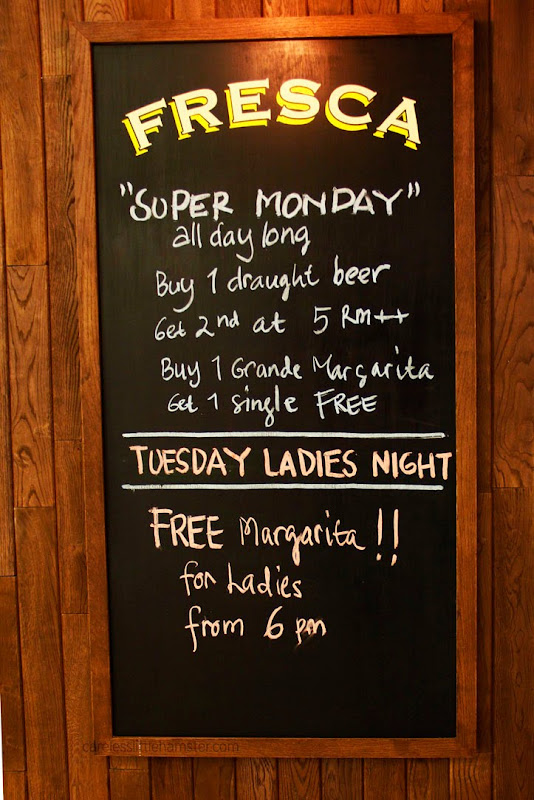 FRESCA
"SUPER MONDAY"
all day long
Buy 1 draught beer
Get 2nd at 5 RM++
Buy 1 Grande Margarita
Get 1 single FREE
TUESDAY LADIES NIGHT
FREE Margarita !!
for Ladies
from 6 pm
carelesslittlehamster.com